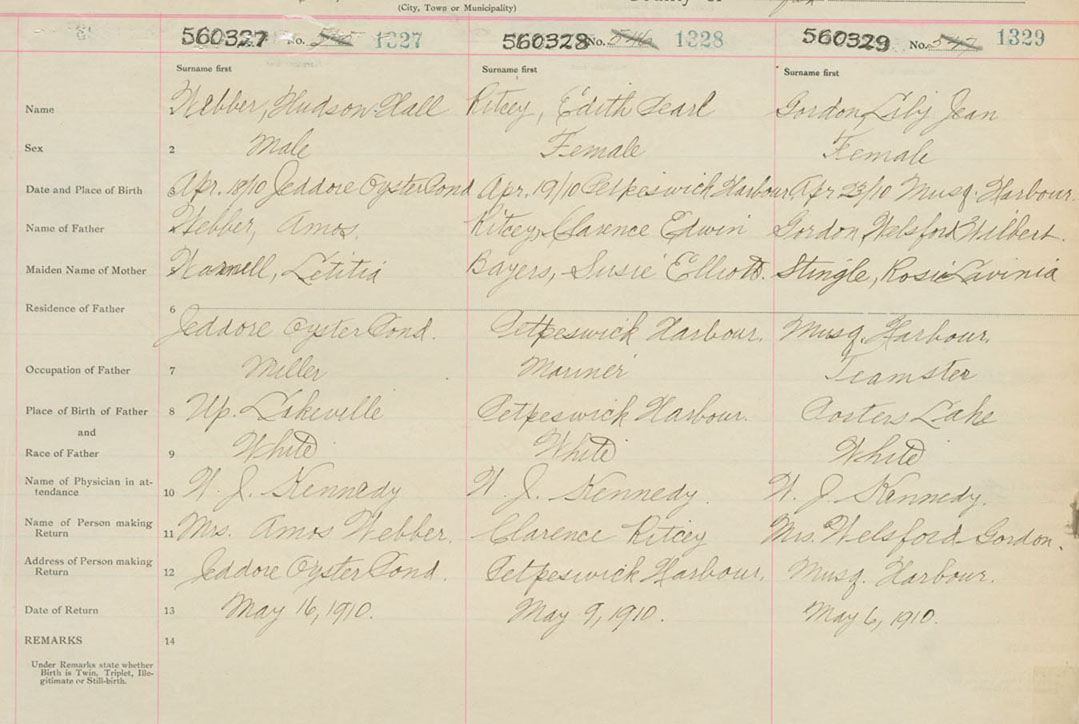 (City, Town or Municipality)
560327 No. 1327 560328 No. 546 1328 560329 No. 547 1329
Surname first Surname first Surname first
Name Webber, Hudson Hall Ritcey, Edith Pearl Gordon, Lily Jean
Sex 2 Male Female Female
Date and Place of Birth 3 Apr. 18/10 Jeddore Oyster Pond Apr. 19/10 Petpeswick Harbour. Apr 23/10 Musq. Harbour.
Name of Father Webber, Amos. Ritcey, Clarence Edwin Gordon, Welsford Wilbert.
Maiden Name of Mother Letitia Bayers, Susie Elliott. Stingle, Rosie Lavinia
Residence of Father 6
Jeddore Oyster Pond. Petpeswick Harbour. Musq. Harbour.
Occupation of Father 7 Miller Mariner Teamster
Place of Birth of Father 8 Up. Lakeville Petpeswick Harbour. Porters Lake
and
Race of Father 9 White White White
Name of Physician in at-
tendance 10 W. J. Kennedy W. J. Kennedy. W. J. Kennedy.
Name of Person making
Return 11 Mrs. Amos Webber. Clarence Ritcey Mrs. Welsford Gordon.
Address of Person making
Return 12 Jeddore Oyster Pond. Petpeswick Harbour. Musq. Harbour.
Date of Return 13 May 16, 1910. May 9, 1910. May 6, 1910.
REMARKS 14
Under Remarks state whether
Birth is Twin, Triplet, Ille-
gitimate or Still-birth.